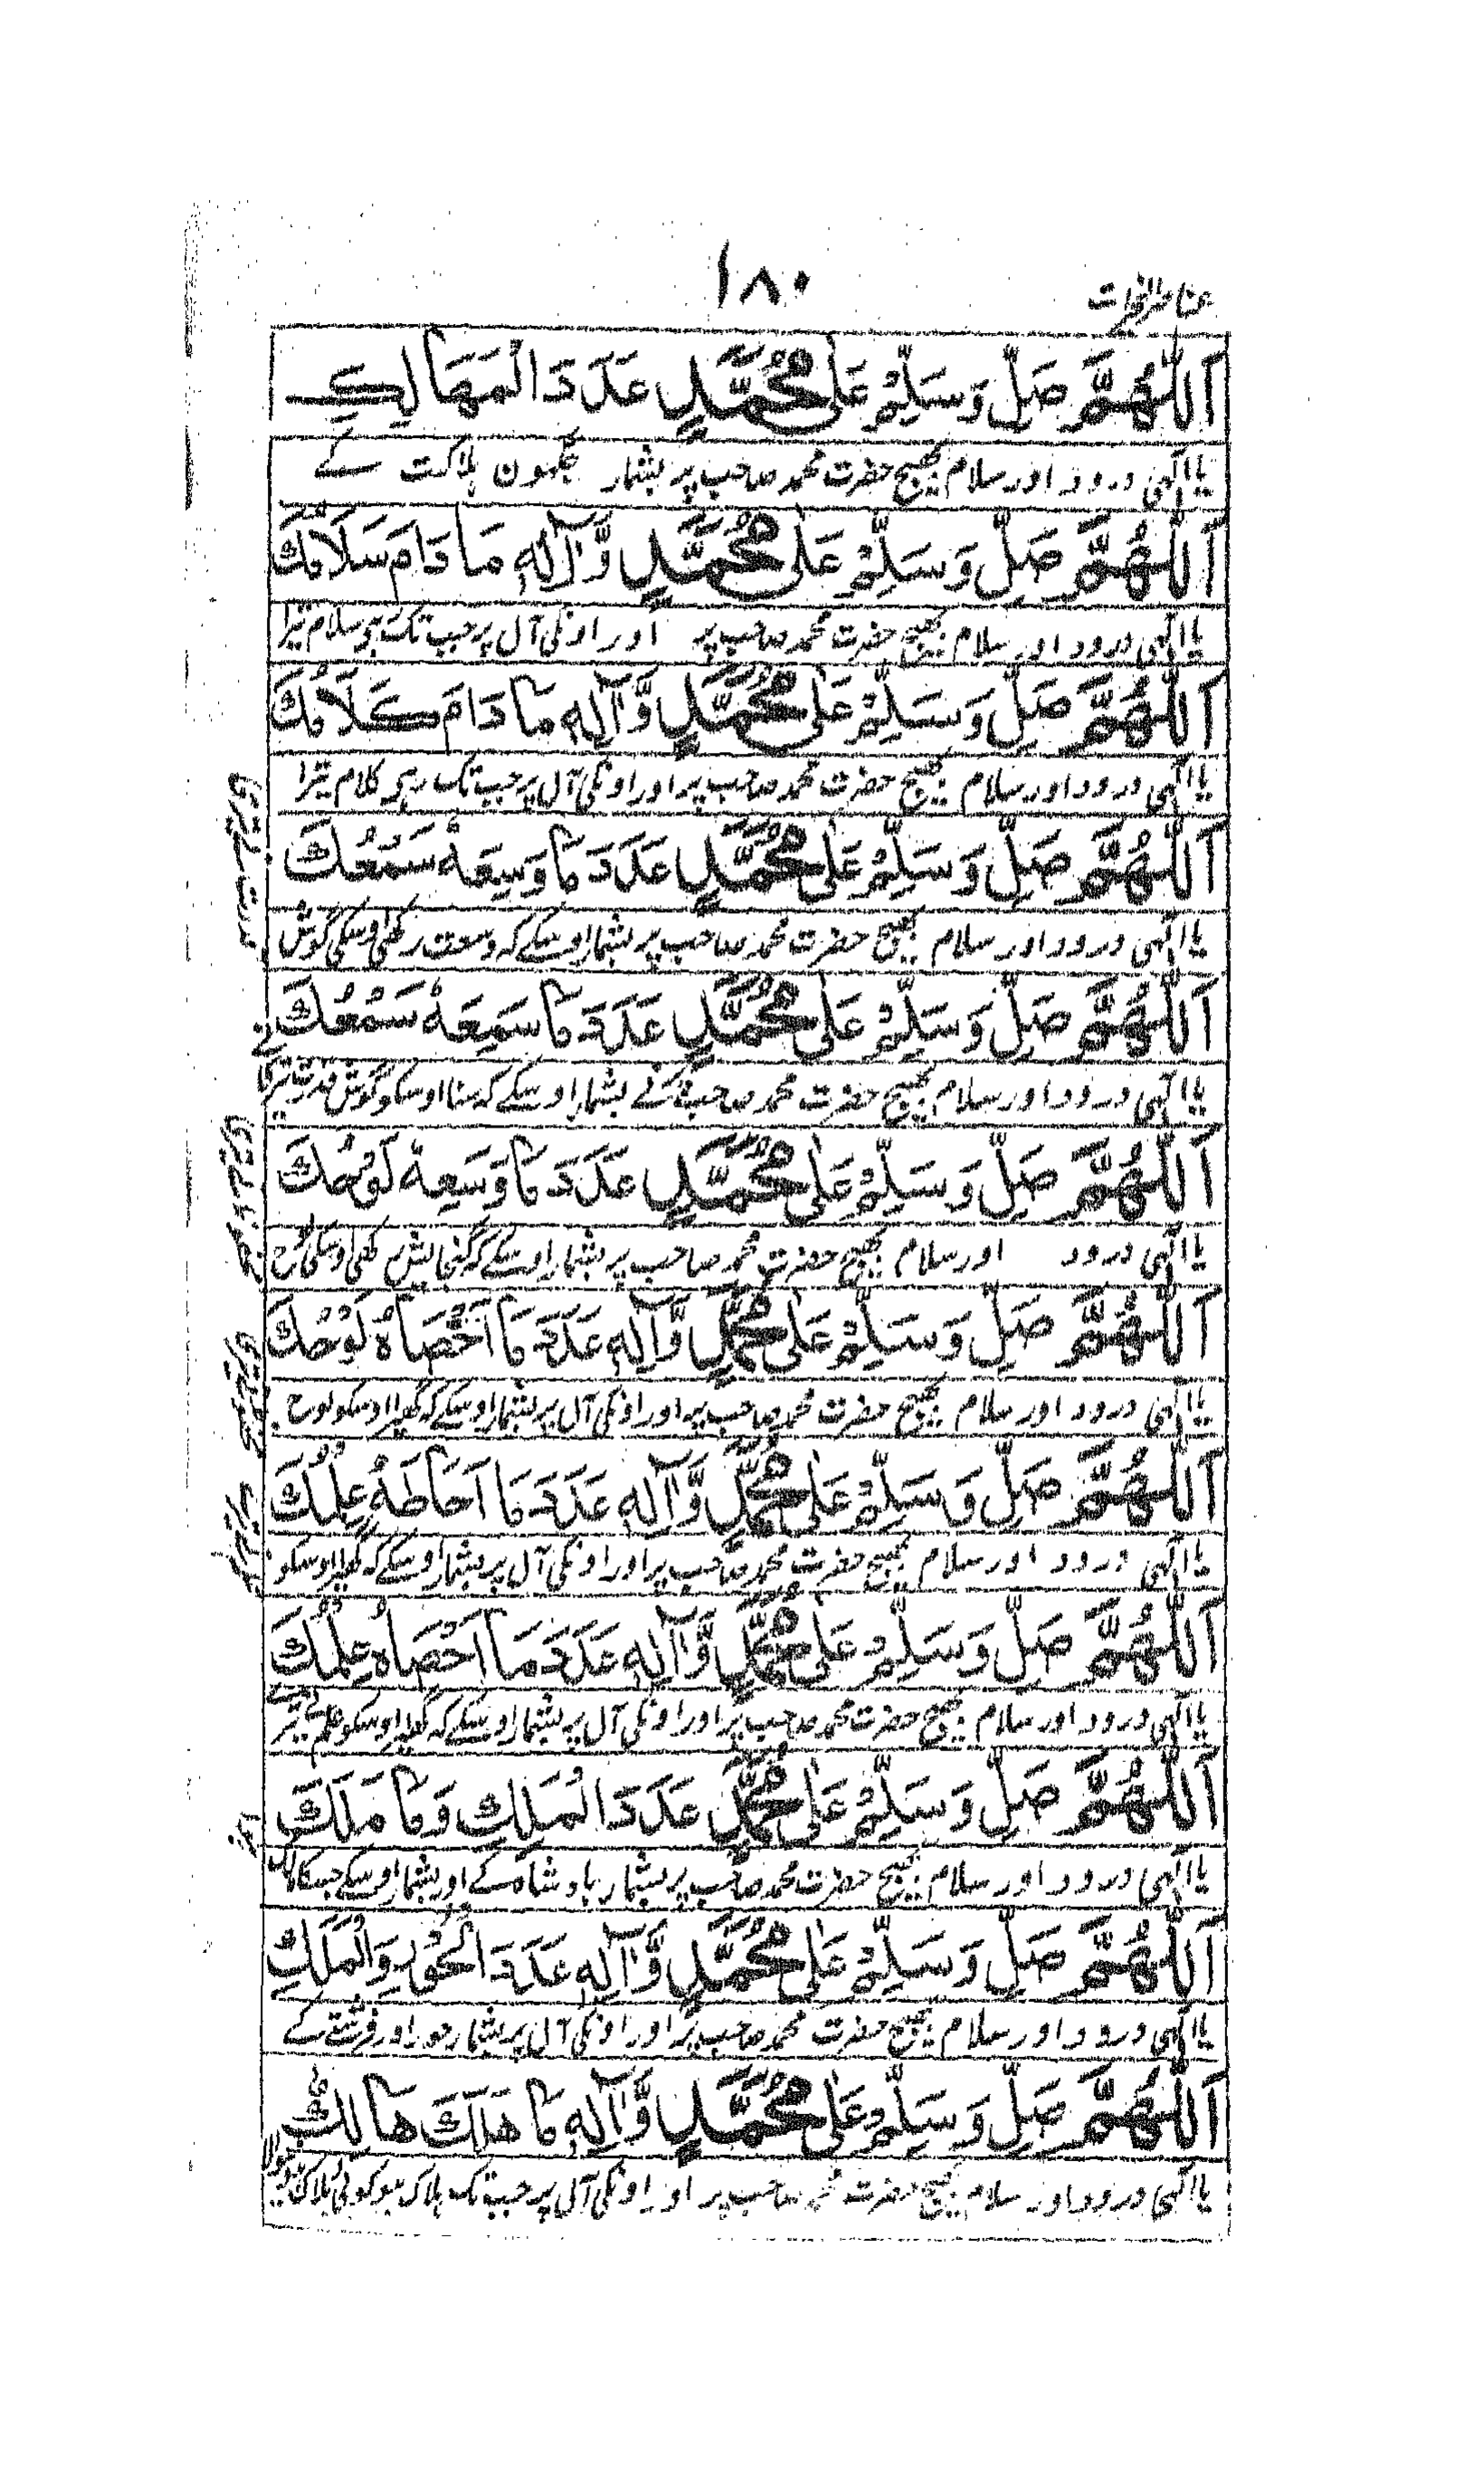 عناصر الخیرات
۱۸۰
اَللّٰهُمَّ صَلِّ وَسَلِّمْ عَلٰى مُحَمَّدٍ عَدَدَ الْمَهَالِكِ
یا الٰہی درود اور سلام بھیج حضرت محمد صاحب پر بشمار جگہون ہلاکت کے
اَللّٰهُمَّ صَلِّ وَسَلِّمْ عَلٰى مُحَمَّدٍ وَّاٰلِهٖ مَا دَامَ سَلَامُكَ
یا الٰہی درود اور سلام بھیج حضرت محمد صاحب پر اور اونکی آل پر جب تک ہی سلام تیرا
اَللّٰهُمَّ صَلِّ وَسَلِّمْ عَلٰى مُحَمَّدٍ وَّاٰلِهٖ مَا دَامَ كَلَامُكَ
یا الٰہی درود اور سلام بھیج حضرت محمد صاحب پر اور اونکی آل پر جب تک رہی کلام تیرا
اَللّٰهُمَّ صَلِّ وَسَلِّمْ عَلٰى مُحَمَّدٍ عَدَدَ مَا وَسِعَهٗ سَمْعُكَ
یا الٰہی درود اور سلام بھیج حضرت محمد صاحب پر بشمار اوسکے کہ وسعت رکھی اوسکی گوش
اَللّٰهُمَّ صَلِّ وَسَلِّمْ عَلٰى مُحَمَّدٍ عَدَدَ مَا سَمِعَهٗ سَمْعُكَ
یا الٰہی درود اور سلام بھیج حضرت محمد صاحب کے بشمار اوسکے کہ سنا اوسکو گوش قدرت تیری
اَللّٰهُمَّ صَلِّ وَسَلِّمْ عَلٰى مُحَمَّدٍ عَدَدَ مَا وَسِعَهٗ لَوْحُكَ
یا الٰہی درود اور سلام بھیج حضرت محمد صاحب پر بشمار اوسکے کہ گنجایش رکھی اوسکی لوح
اَللّٰهُمَّ صَلِّ وَسَلِّمْ عَلٰى مُحَمَّدٍ وَّاٰلِهٖ عَدَدَ مَا اَحْصَاهُ لَوْحُكَ
یا الٰہی درود اور سلام بھیج حضرت محمد صاحب پر اور اونکی آل پر بشمار اوسکے کہ گھیرا اوسکو لوح
اَللّٰهُمَّ صَلِّ وَسَلِّمْ عَلٰى مُحَمَّدٍ وَّاٰلِهٖ عَدَدَ مَا اَحَاطَهٗ عِلْمُكَ
یا الٰہی درود اور سلام بھیج حضرت محمد صاحب پر اور اونکی آل پر بشمار اوسکے کہ گھیرا اوسکو
اَللّٰهُمَّ صَلِّ وَسَلِّمْ عَلٰى مُحَمَّدٍ وَّاٰلِهٖ عَدَدَ مَا اَحْصَاهُ عِلْمُكَ
یا الٰہی درود اور سلام بھیج حضرت محمد صاحب پر اور اونکی آل پر بشمار اوسکے کہ گھیرا اوسکو علم تیرے
اَللّٰهُمَّ صَلِّ وَسَلِّمْ عَلٰى مُحَمَّدٍ عَدَدَ الْمَلِكِ وَمَا مَلَكَ
یا الٰہی درود اور سلام بھیج حضرت محمد صاحب پر بشمار بادشاہ کے اور بشمار اوسکے جسکا مالک
اَللّٰهُمَّ صَلِّ وَسَلِّمْ عَلٰى مُحَمَّدٍ وَّاٰلِهٖ عَدَدَ الْحُوْرِ وَالْمَلَكِ
یا الٰہی درود اور سلام بھیج حضرت محمد صاحب پر اور اونکی آل پر بشمار حور اور فرشتے کے
اَللّٰهُمَّ صَلِّ وَسَلِّمْ عَلٰى مُحَمَّدٍ وَّاٰلِهٖ مَا هَلَكَ هَالِكٌ
یا الٰہی درود اور سلام بھیج حضرت محمد صاحب پر اور اونکی آل پر جب تک ہلاک ہو کوئی ہلاک